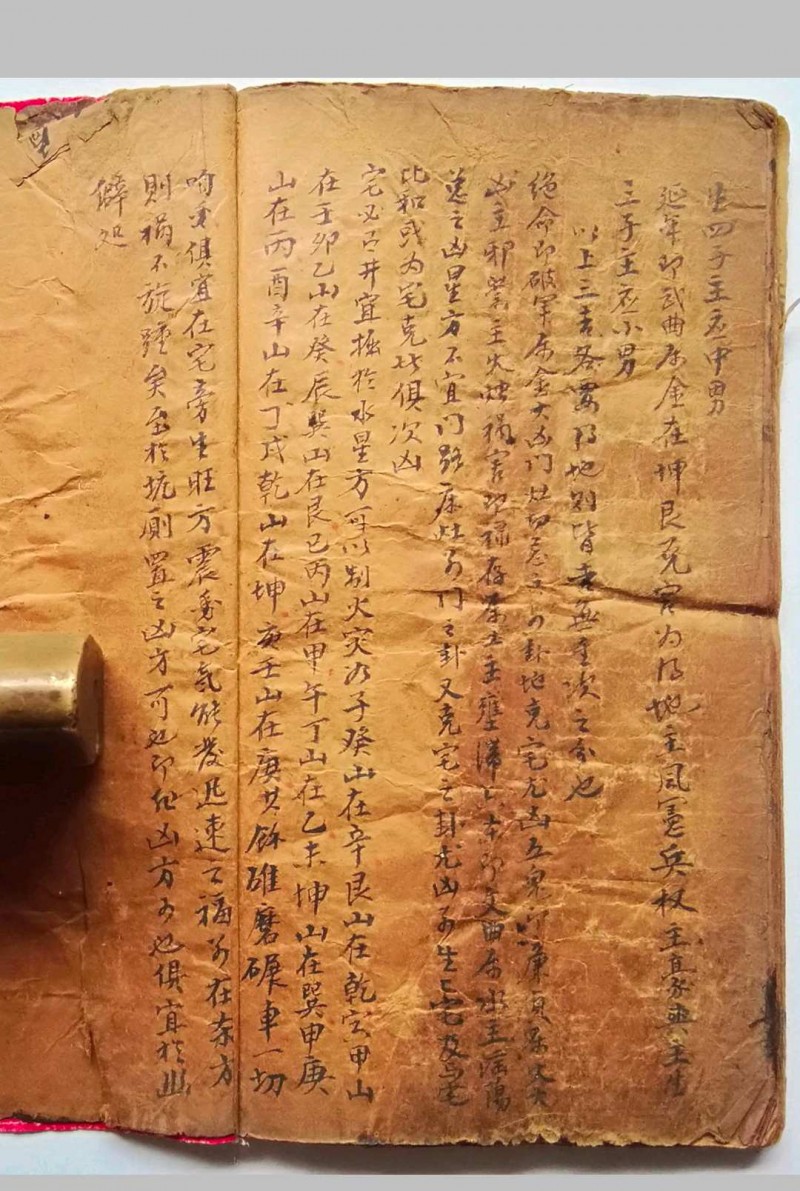 生四子主应中男
延年即武曲属金在坤艮兑宫为得地主风宪兵权主豪典主生
三子主应小男
以上三吉各要得地则皆吉無重災之分也
绝命即破军属金大凶门灶切忌之卦地克宅尤凶五鬼即廉貞属火大
凶主邪祟主火烛禍害即禄存属土主壅滞六杀即文曲属水主淫陽
忌之凶星方不宜门路床灶门之卦又克宅之卦尤凶生宅及与宅
比和或为宅克此俱次凶
宅必穿井宜掘於水星方可以制火灾如子癸山在辛艮山在乾寅甲山
在壬卯乙山在癸辰巽山在艮巳丙山在甲午丁山在乙未坤山在巽甲庚
山在丙酉辛山在丁戌乾山在坤庚壬山在庚其餘碓磨碾車一切
响重俱宜在宅旁生旺方震動宅氣能發迅速之福若在杀方
則禍不旋踵矣至於坑厠置之凶方可也即他凶方亦也俱宜於幽
僻处